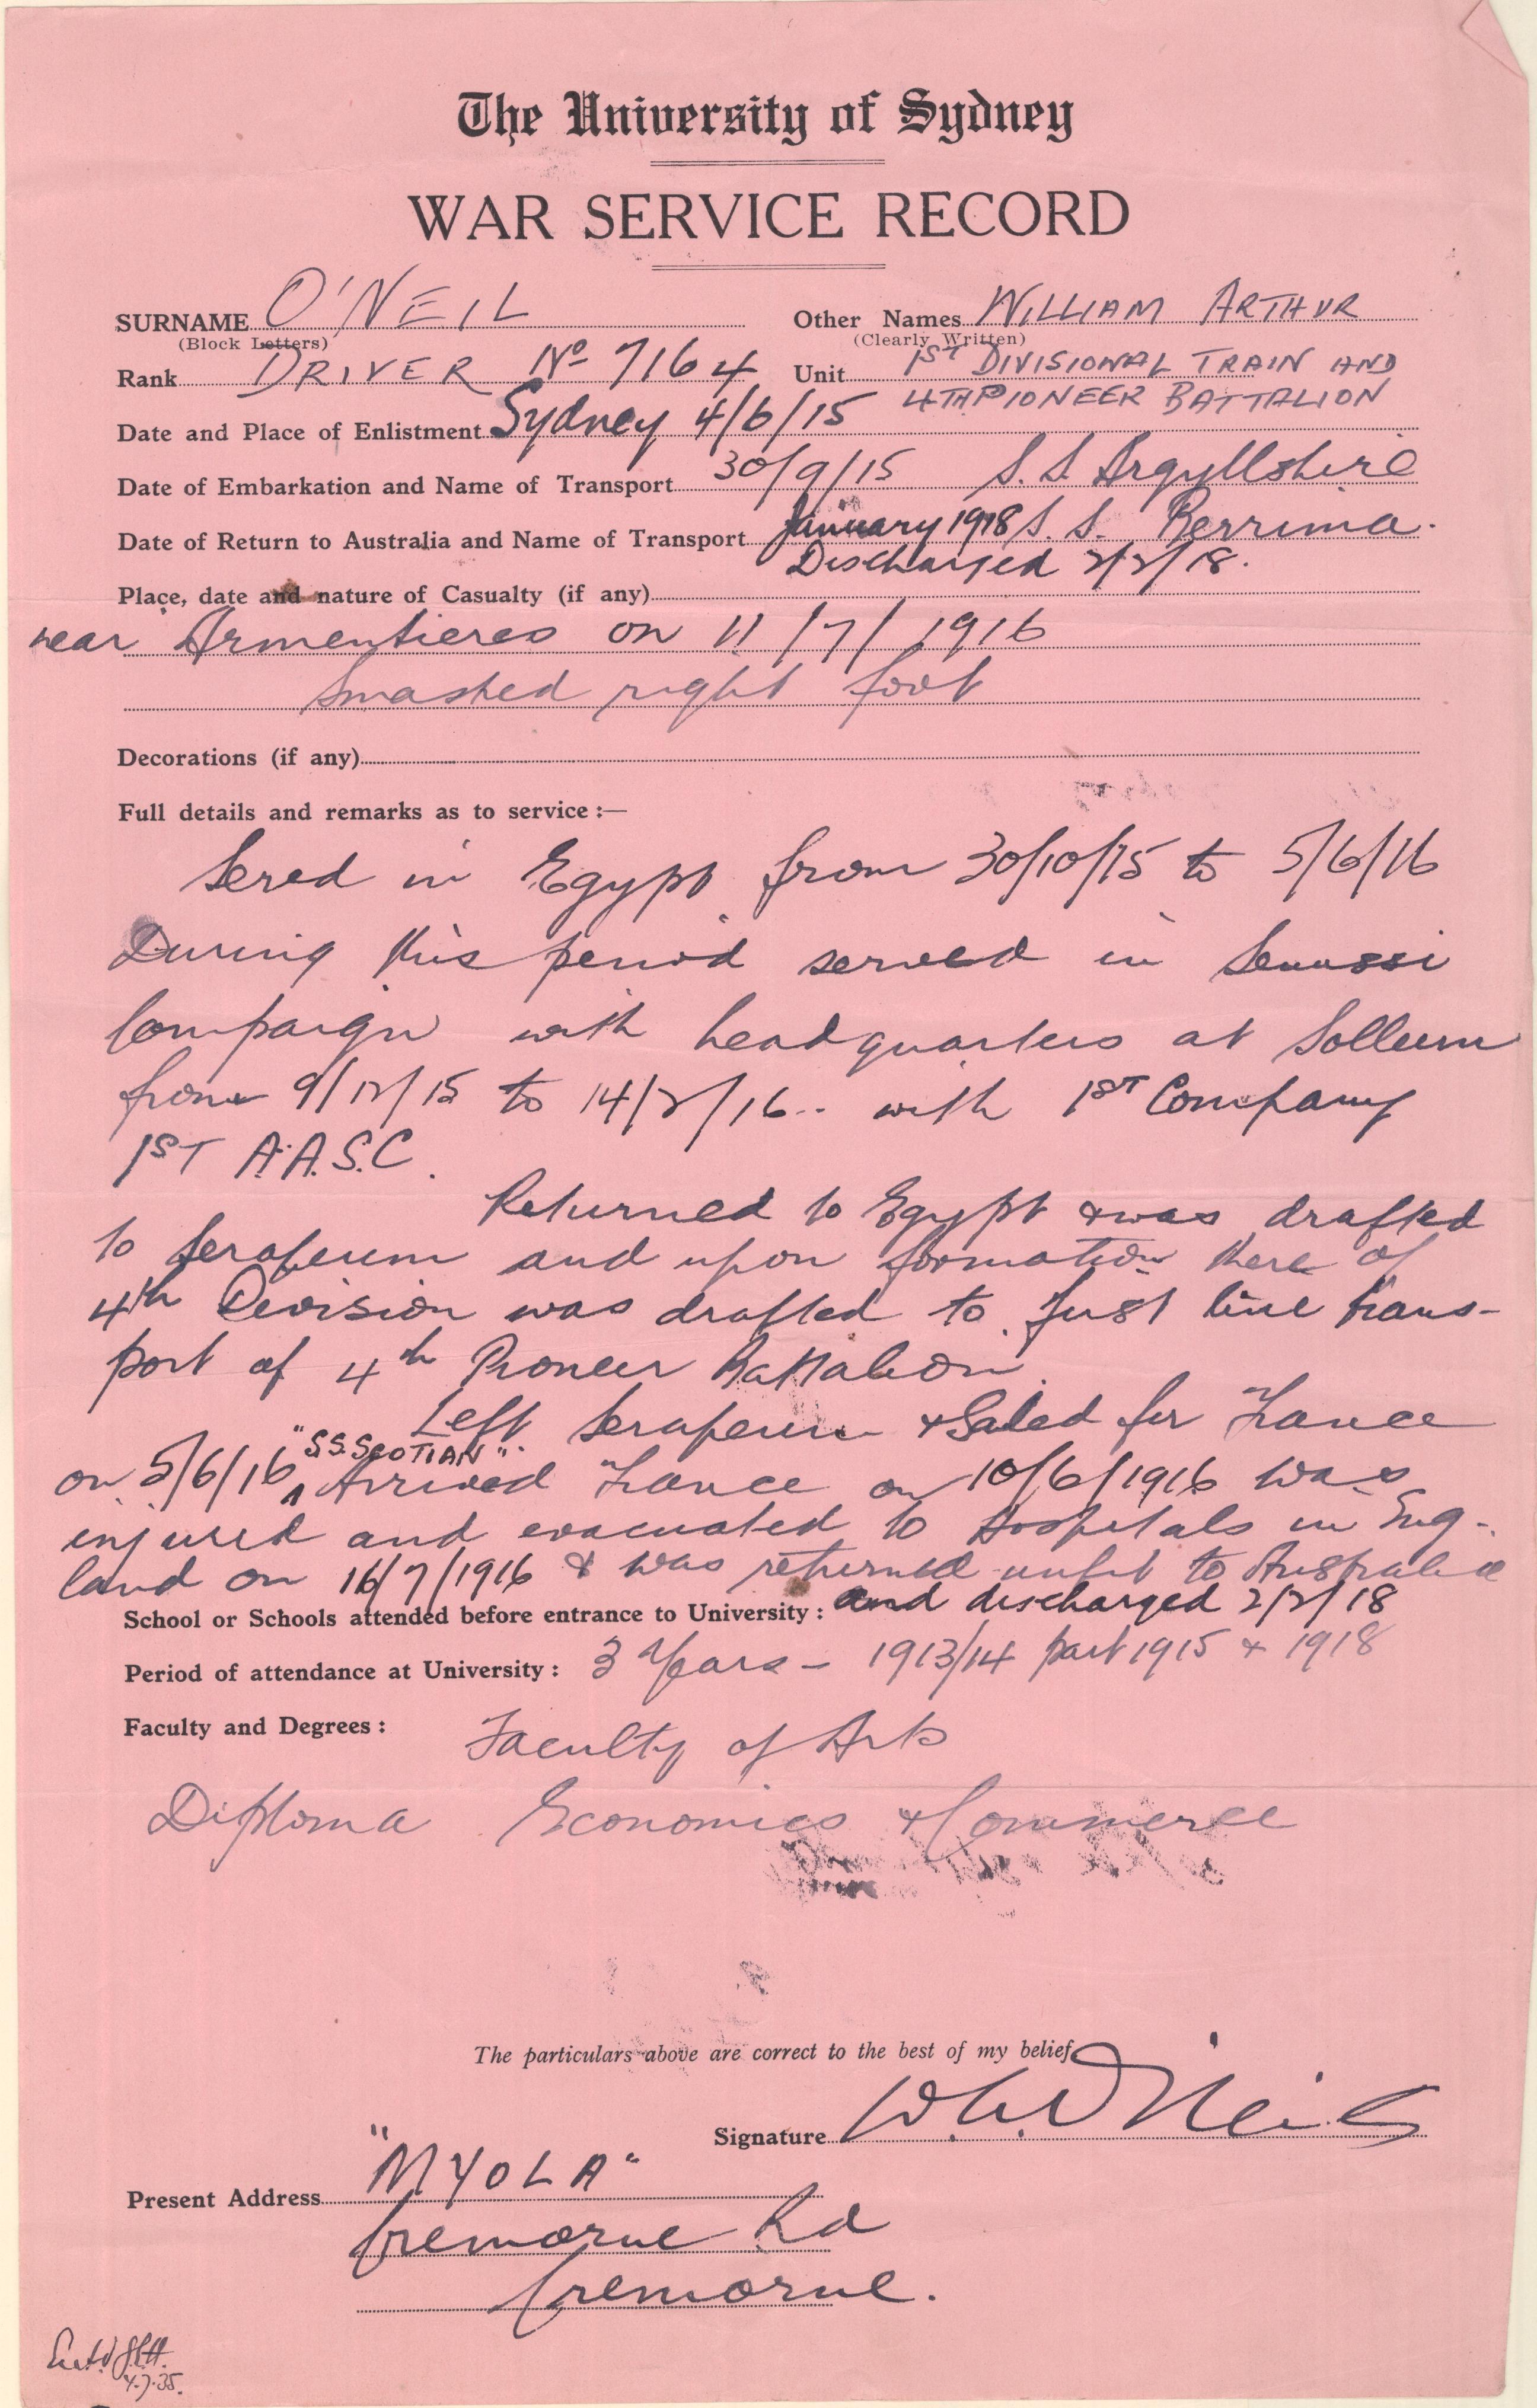 The University of Sydney
WAR SERVICE RECORD
SURNAME O'NEIL Other Names WILLIAM ARTHUR
(Block Letters) (Clearly Written)
Rank DRIVER No 7164 Unit 1ST DIVISIONAL TRAIN AND
4TH PIONEER BATTALION
Date and Place of Enlistment Sydney 4/6/15
Date of Embarkation and Name of Transport 30/9/15 S.S Argyllshire
Date of Return to Australia and Name of Transport January 1918 S.S. Berrima.
Discharged 2/2/18.
Place, date and nature of Casualty (if any)
near Armentieres on 11/7/1916
Smashed right foot
Decorations (if any)
Full details and remarks as to service :—
Sered in Egypt from 30/10/15 to 5/6/16
During this period served in Senussi
Campaign with headquarters at Solleum
from 9/12/15 to 14/2/16.. with 1ST Company
1ST A.A.S.C.
Returned to Egypt & was drafted
to Serapeum and upon formation there of
4th Division was drafted to first line trans-
port of 4th Pioneer Battalion.
Left Serapeum & Sailed for France
on 5/6/16 "S.S. SCOTIAN". Arrived France on 10/6/1916 was
injured and evacuated to Hospitals in Eng-
land on 16/7/1916 & was returned unfit to Australia
School or Schools attended before entrance to University : and discharged 2/2/18
Period of attendance at University : 3 Years - 1913/14 part 1915 & 1918
Faculty and Degrees : Faculty of Arts
Diploma Economics & Commerce
The particulars above are correct to the best of my belief
Signature W.A. O'Neil
Present Address "MYOLA"
Cremorne Rd
Cremorne.
4.7.35.